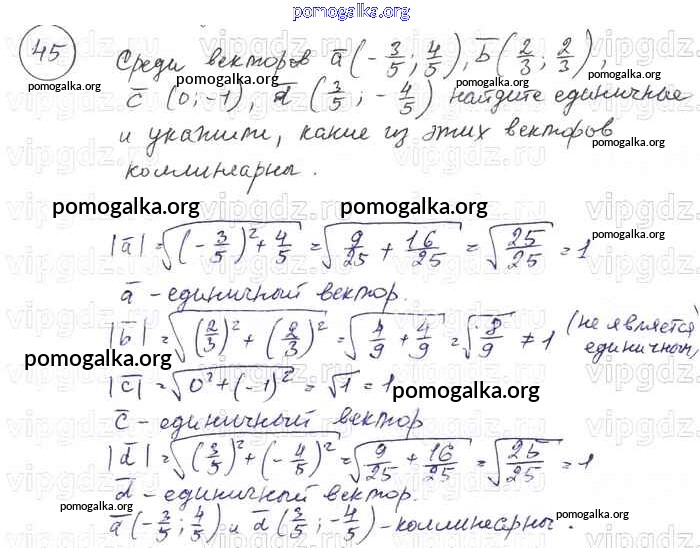 pomogalka.org
45 Среди векторов a̅(-3/5; 4/5), b̅(2/3; 2/3),
c̅ (0; -1), d̅ (3/5; -4/5) найдите единичные
и укажити, какие из этих векторов
коллинеарны.
pomogalka.org pomogalka.org
|a̅| = √((-3/5)² + 4/5) = √(9/25 + 16/25) = √(25/25) = 1
a̅ - единичный вектор.
|b̅| = √((2/3)² + (2/3)²) = √(4/9 + 4/9) = √(8/9) ≠ 1 (не является единичным)
pomogalka.org
|c̅| = √(0² + (-1)²) = √1 = 1
pomogalka.org
c̅ - единичный вектор
|d̅| = √((3/5)² + (-4/5)²) = √(9/25 + 16/25) = √(25/25) = 1
d̅ - единичный вектор.
a̅(-3/5; 4/5) и d̅(3/5; -4/5) - коллинеарны.